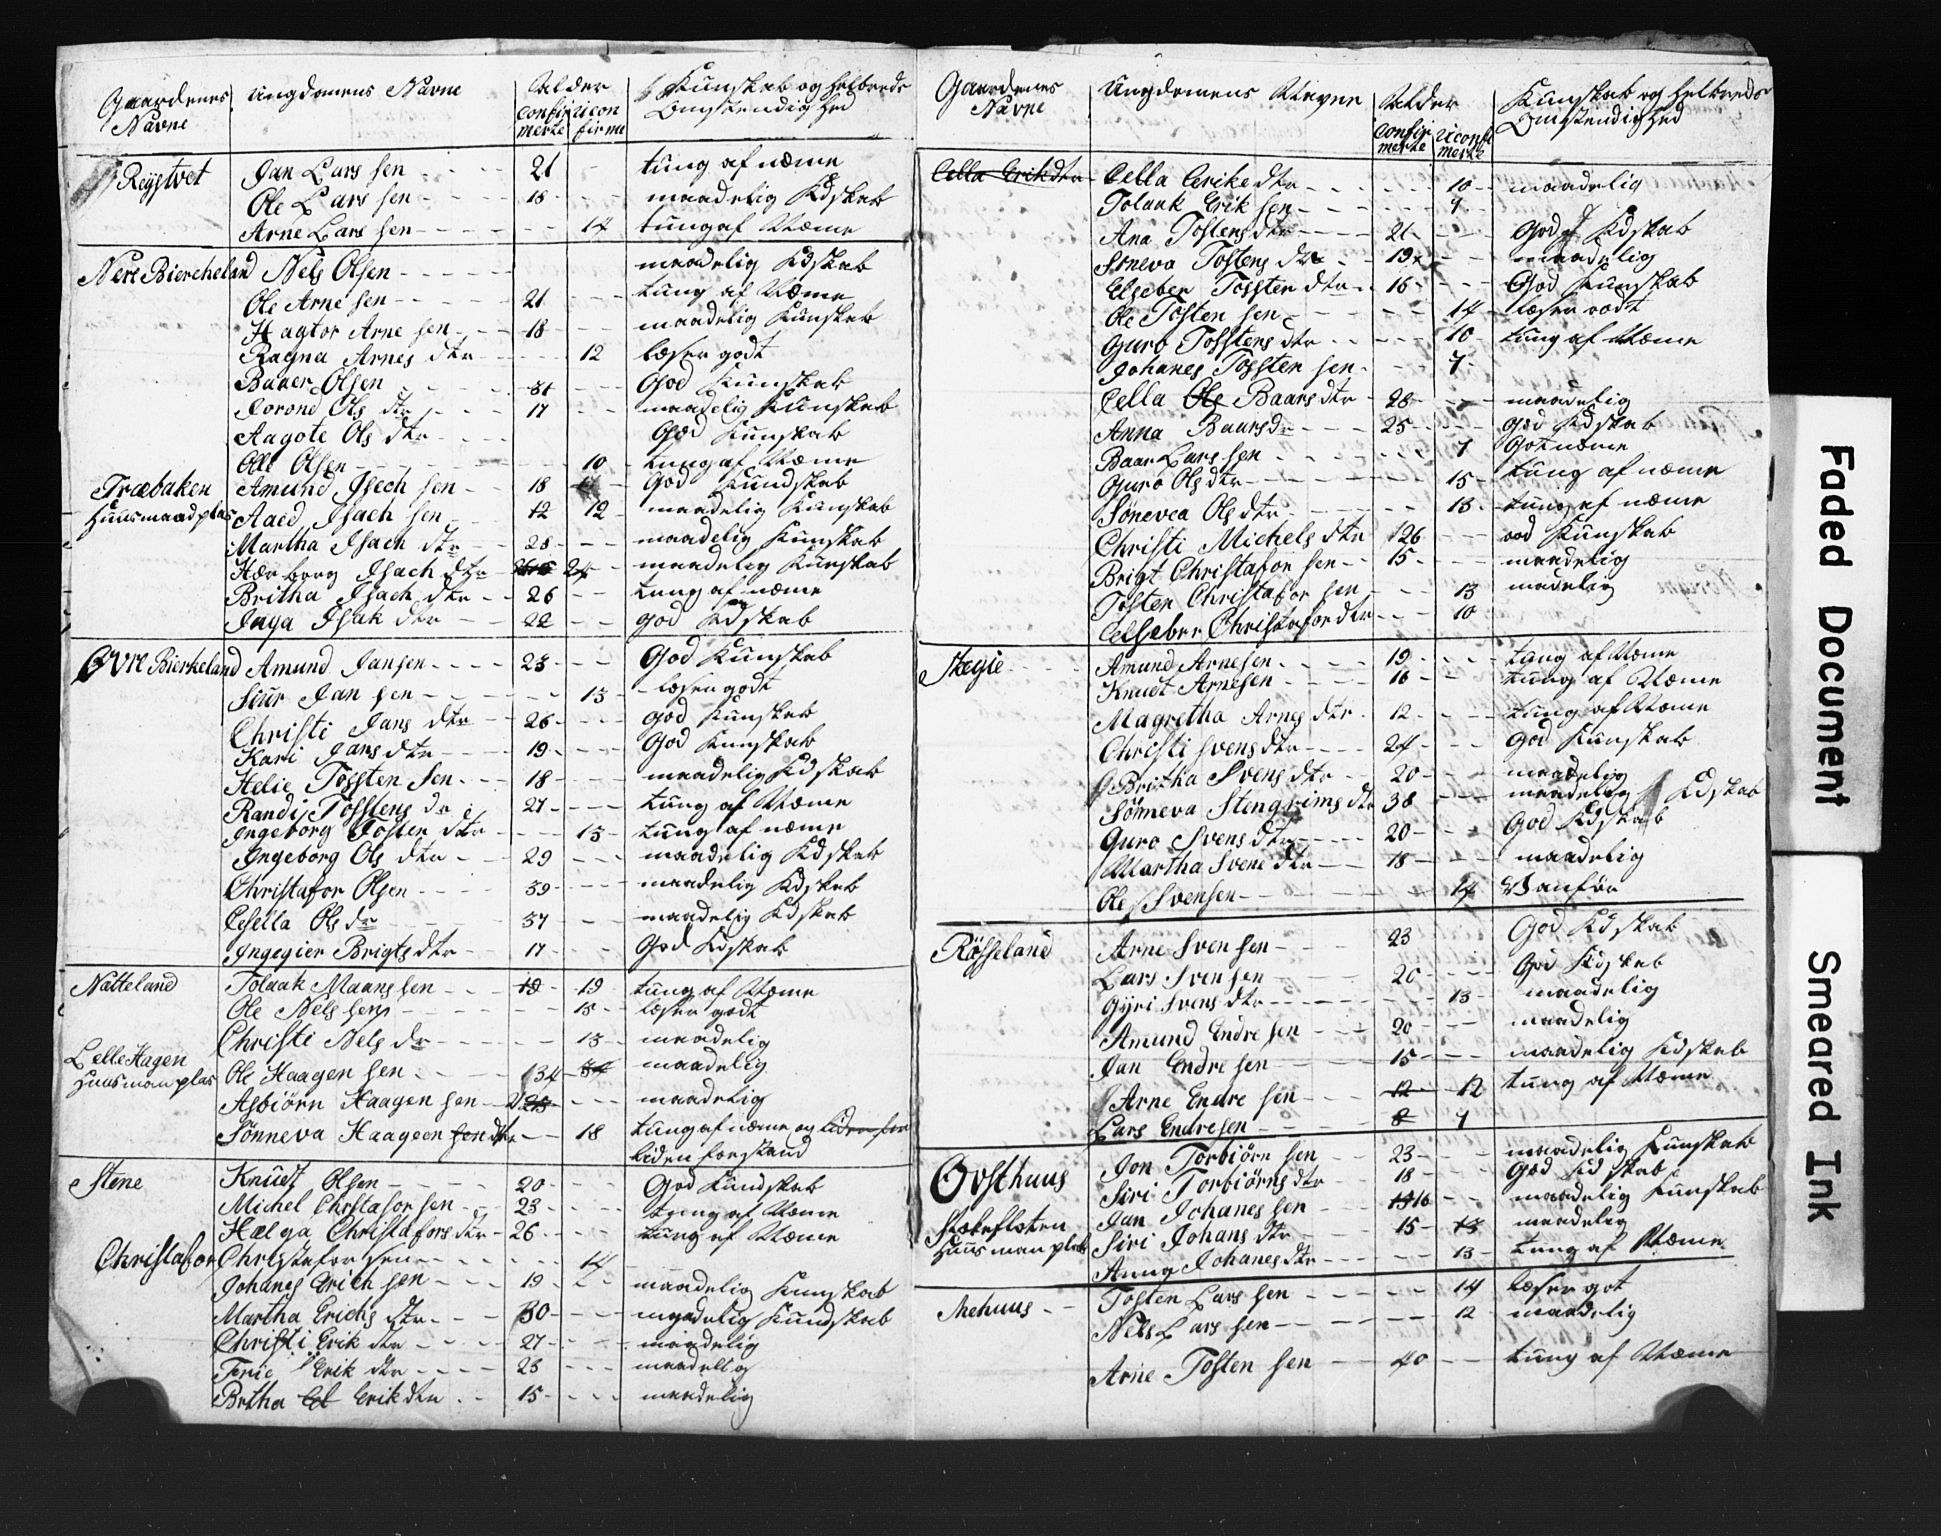 Gaardenes Navne | Ungdomens Navne | Alder Confirmerte | Uconfirme | Kunskab og helbreds Omstendighed
Røystvet | Jan Lars sen | 21 | tung af næme
Ole Lars sen | 18 | maadelig Kdskab
Arne Lars sen | 14 | tung af Næme
Nere Biercheland | Nels Olsen | maadelig Kdskab
Ole Arne sen | 21 | tung af Næme
Hagtor Arne sen | 18 | maadelig Kunskab
Ragna Arnes dtr | 12 | læser godt
Baaer Olsen | 31 | God Kunskab
Torond Ols dtr | 17 | maadelig Kunskab
Aagote Ols dtr | God Kunskab
Ole Olsen | 10 | tung af Næme
Træbaken | Amund Isech sen | 18 | God Kundskab
Huusmaandplas | Aaed Isach sen | 12 | 12 | maadelig Kunskab
Martha Isach dtr | 28 | maadelig Kunskab
Hærborg Isach dtr | 24 | maadelig Kunskab
Britha Isach dtr | 26 | tung af næme
Inga Isak dtr | 22 | god Kdskab
Øvre Bierkeland | Amund Jansen | 23 | God Kunskab
Siur Jan sen | 13 | læser godt
Christi Jans dtr | 26 | god Kunskab
Kari Jans dtr | 19 | God Kunskab
Helie Tossten sen | 18 | maadelig Kdskab
Randi Tosstens dr | 21 | tung af Næme
Ingeborg Tosten dtr | 13 | tung af næme
Ingeborg Ols dtr | 29 | maadelig Kdskab
Christafor Olsen | 39 | maadelig Kdskab
Cesella Ols dr | 37 | maadelig Kdskab
Ingegier Brigts dtr | 17 | God Kdskab
Natteland | Tolaak Maans sen | 19 | 19 | tung af Næme
Ole Nels sen | 15 | læser godt
Christi Nels dr | 13 | maadelig
Lelle Hagen | Ole Haagen sen | 34 | 34 | maadelig
Huusmanplas | Asbiørn Haagen sen | 25 | maadelig
Sønneva Haageen sen dtr | 18 | tung af næme og liden for
liden forstand
Stene | Knudt Olsen | 20 | God Kundskab
Michel Christafor sen | 23 | tung af Næme
Hælga Christafors dtr | 26 | tung af Næme
Christafor Christafor sen | 14
Johanes Erich sen | 19 | maadelig Kunskab
Martha Erichs dtr | 30 | maadelig Kundskab
Christi Erik dtr | 27 | maadelig
Erik dtr | 23 | maadelig
Britha Erik dtr | 15 | maadelig
Gaardenes Navne | Ungdomens Navne | Alder Confirmerte | Uconfirmerte | Kunskab og helbreds Omstendighed
Cella Erikdtr | Cella Erike dtr | 10 | maadelig
Tolaak Erik sen | 7
Ana Tostens dtr | 21 | God Kdskab
Sðneva Tostens dtr | 19 | maadelig
Elseber Tossten dtr | 16 | God Kunskab
Ole Tosten sen | 14 | læser godt
Guro Tosstens dtr | 10 | tung af Næme
Johanes Tossten sen | 7
Cella Ols Baars dtr | 28 | maadelig
Anna Baars dr | 25 | God Kdskab
Baar Lars sen | 7 | Got næme
Guro Ols dtr | 15 | tung af næme
Sønevea Ols dtr | 13 | tung af næme
Christi Michels dtr | 26 | god Kunskab
Brigt Christafor sen | 15 | maadelig
Tosten Christafor sen | 13 | madelig
Celseber Christafor dtr | 10
Skeyie | Amund Arnesen | 19 | tung af Næme
Knudt Arnesen | 16 | tung af Næme
Magretha Arnes dtr | 12 | tung af Næme
Christi Svens dtr | 24 | God Kunskab
Britha Svens dtr | 20 | maadelig
Sønneva Stengrims dtr | 38 | maadelig Kdskab
Guro Svens dtr | 20 | God Kdskab
Martha Svene dtr | 18 | maadelig
Ole Svensen | 14 | Vanför
Røsseland | Arne Sven sen | 23 | God Kdskab
Lars Svensen | 20 | God Kdskab
Gyri Svens dtr | 13 | maadelig
Amund Endre sen | 20 | maadelig
Jan Endre sen | 15 | maadelig Kdskab
Arne Endre sen | 12 | 12 | tung af Næme
Lars Endresen | 8 | 7
Ovsthuus | Jon Torbiørn sen | 23 | maadelig Kunskab
Siri Torbiørns dtr | 18 | God Kdskab
Jan Johanes sen | 16 | maadelig Kunskab
Stakefloten | Siri Johans dtr | 15 | 13 | maadelig
Huusmanplas | Anna Johanes dtr | 13 | tung af Næme
Nehuus | Tosten Lars sen | 14 | læser got
Nels Lars sen | 12 | maadelig
Arne Tosten sen | 40 | tung af Næme
Faded Document
Smeared Ink